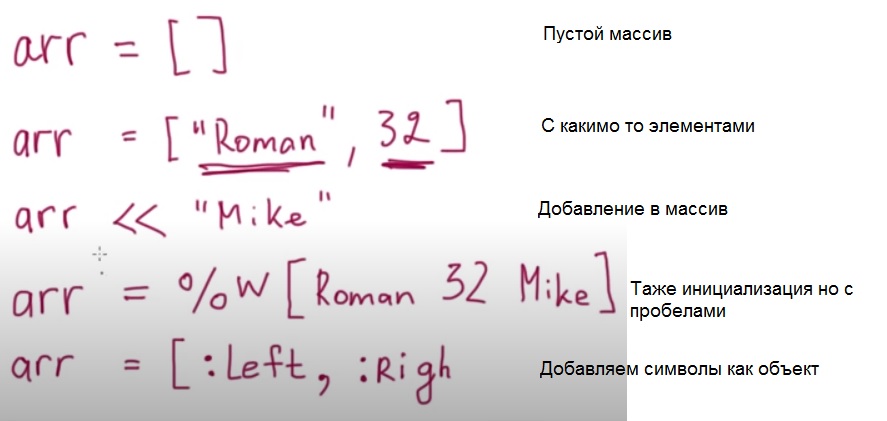 arr = [ ] Пустой массив
arr = ["Roman", 32] С какимо то элементами
arr << "Mike" Добавление в массив
arr = %w [Roman 32 Mike] Таже инициализация но с
пробелами
arr = [:Left, :Righ Добавляем символы как объект